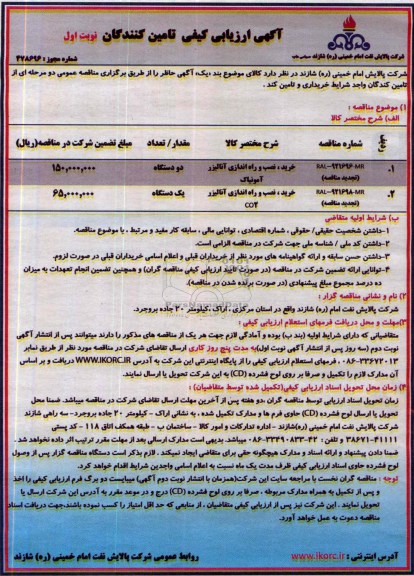 آگهی ارزیابی کیفی تامین کنندگان نوبت اول
شرکت پالایش نفت امام خمینی (ره) شازند
شماره مجوز : ۴۷۸۶۹۶
شرکت پالایش نفت امام خمینی (ره) شازند در نظر دارد کالای موضوع بند «یک» آگهی حاظر را از طریق برگزاری مناقصه عمومی دو مرحله ای از
تامین کندگان واجد شرایط خریداری و تامین کند .
۱) موضوع مناقصه :
الف) شرح مختصر کالا
ردیف شماره مناقصه شرح مختصر کالا مقدار / تعداد مبلغ تضمین شرکت در مناقصه(ریال)
۰۱ RAL-۹۲۱۶۹۶-MR خرید ، نصب و راه اندازی آنالیزر دو دستگاه ۱۵۰,۰۰۰,۰۰۰
(تجدید مناقصه) آمونیاک
۰۲ RAL-۹۲۱۶۹۸-MR خرید ، نصب و راه اندازی آنالیزر یک دستگاه ۶۵,۰۰۰,۰۰۰
(تجدید مناقصه) CO۲
ب) شرایط اولیه متقاضی
۱-داشتن شخصیت حقیقی/ حقوقی ، شماره اقتصادی ، توانایی مالی ، سابقه کار مفید و مرتبط ، با موضوع مناقصه.
۲-داشتن کد ملی / شناسه ملی جهت شرکت در مناقصه الزامی است.
۳-داشتن حسن سابقه و ارائه گواهینامه های مورد نظر از خریداران قبلی و اعلام اسامی خریداران قبلی در صورت لزوم.
۴-توانایی ارائه تضمین شرکت در مناقصه (در صورت تایید ارزیابی کیفی مناقصه گران) و همچنین تضمین انجام تعهدات به میزان
ده درصد مجموع مبلغ پیشنهادی (در صورت برنده شدن در مناقصه).
۲) نام و نشانی مناقصه گزار :
شرکت پالایش نفت امام خمینی (ره) شازند واقع در استان مرکزی ، اراک ،کیلومتر ۲۰ جاده بروجرد.
۳)مهلت و محل دریافت فرمهای استعلام ارزیابی کیفی :
متقاضیانی که دارای شرایط اولیه (بند ب) بوده و آمادگی لازم جهت هر یک از مناقصه های مذکور را دارند میتوانند پس از انتشار آگهی
نوبت دوم (سه روز پس از انتشار آگهی نوبت اول)به مدت پنج روز کاری ارسال تقاضای شرکت در مناقصه مورد نظر از طریق نمابر
۰۸۶-۳۳۶۷۲۰۱۳ ، فرمهای استعلام ارزیابی کیفی را از پایگاه اینترنتی این شرکت به آدرس WWW.IKORC.IR دریافت و بر اساس
آن مدارک لازم را تکمیل و صرفا بر روی لوح فشرده (CD) به این شرکت تحویل نمایند.
۴) زمان محل تحویل اسناد ارزیابی کیفی(تکمیل شده توسط متقاضیان) :
زمان تحویل اسناد ارزیابی توسط مناقصه گران ،دو هفته پس از آخرین مهلت ارسال تقاضای شرکت در مناقصه میباشد. ضمنا محل
تحویل یا ارسال لوح فشرده (CD) حاوی فرم ها و مدارک تکمیل شده ، به نشانی اراک - کیلومتر ۲۰ جاده بروجرد- سه راهی شازند
شرکت پالایش نفت امام خمینی (ره)شازند - اداره تدارکات و امور کالا - ساختمان ب - طبقه همکف اتاق ۱۱۸ - کد پستی
۳۸۶۷۱-۴۱۱۱۱ و تلفن: ۴۲-۰۸۶-۳۳۴۹۰۸۳۳ میباشد. بدیهی است مدارک ارسالی بعد از مهلت مقرر ترتیب اثر داده نخواهد شد .
ضمنا دادن پیشنهاد و ارائه اسناد و مدارک هیچگونه حقی برای متقاضی ایجاد نمیکند . لازم بذکر است دستگاه مناقصه گزار پس از وصول
لوح فشرده حاوی اسناد ارزیابی کیفی ظرف مدت یک ماه نسبت به اعلام اسامی واجدین شرایط اقدام خواهد کرد.
توجه : مناقصه گران نخست با مراجعه سایت این شرکت(همزمان با انتشار نوبت دوم آگهی) میبایست دو برگ فرم ارزیابی کیفی را اخذ
و پس از تکمیل به همراه مدارک مربوطه ، صرفا بر روی لوح فشرده (CD) درج و در موعد مقرر به آدرس این شرکت ارسال یا
تحویل نمایند . این شرکت نیز پس از ارزیابی کیفی متقاضیان ، از منابعی که حد اقل امتیاز را کسب نموده باشند،جهت دریافت اسناد
مناقصه دعوت به عمل خواهد آورد.
آدرس اینترنتی : www.ikorc.ir روابط عمومی شرکت پالایش نفت امام خمینی (ره) شازند